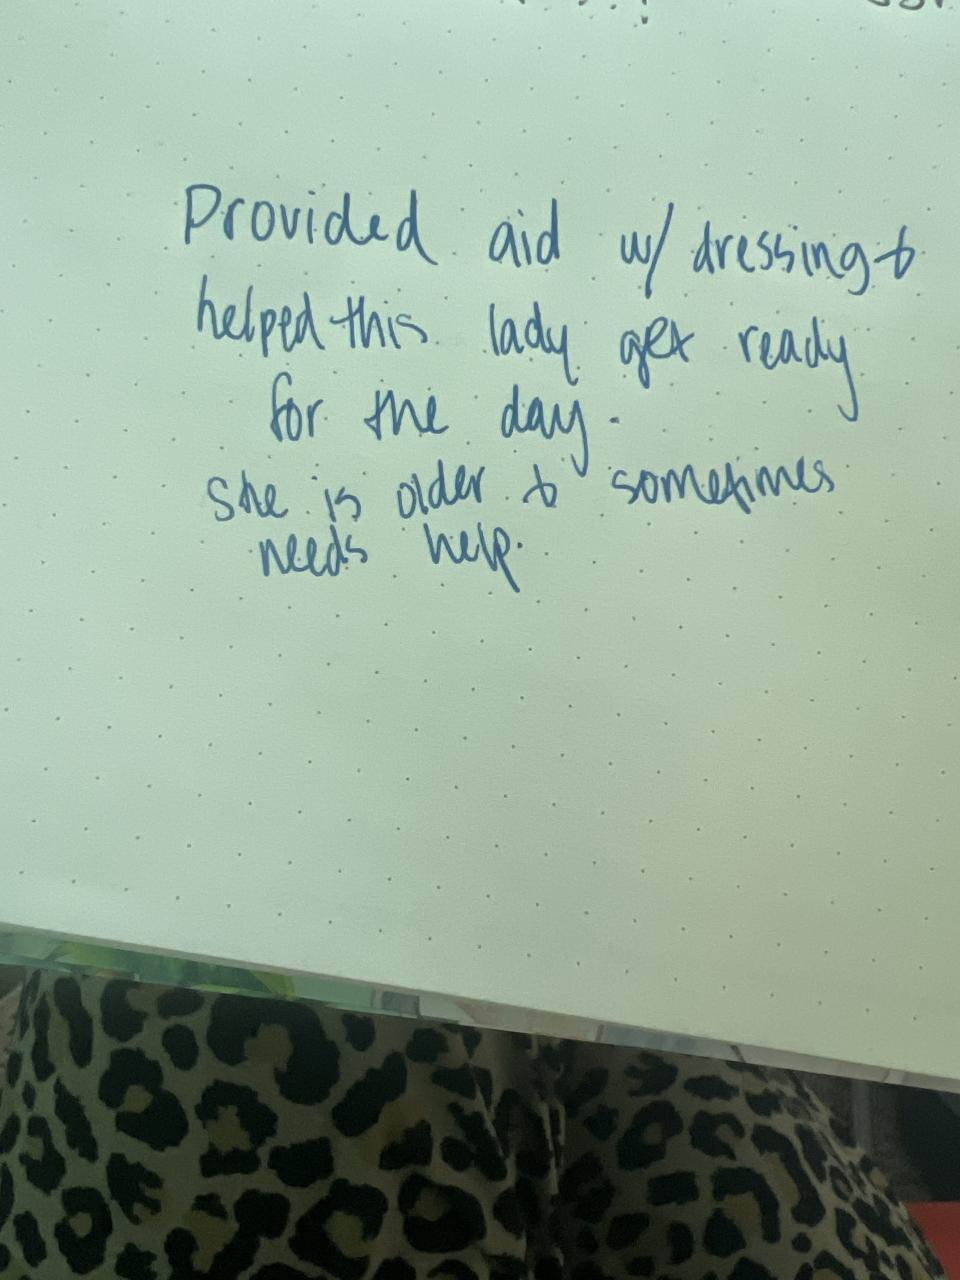 Provided aid w/ dressing &
helped this lady get ready
for the day.
She is older & sometimes
needs help.